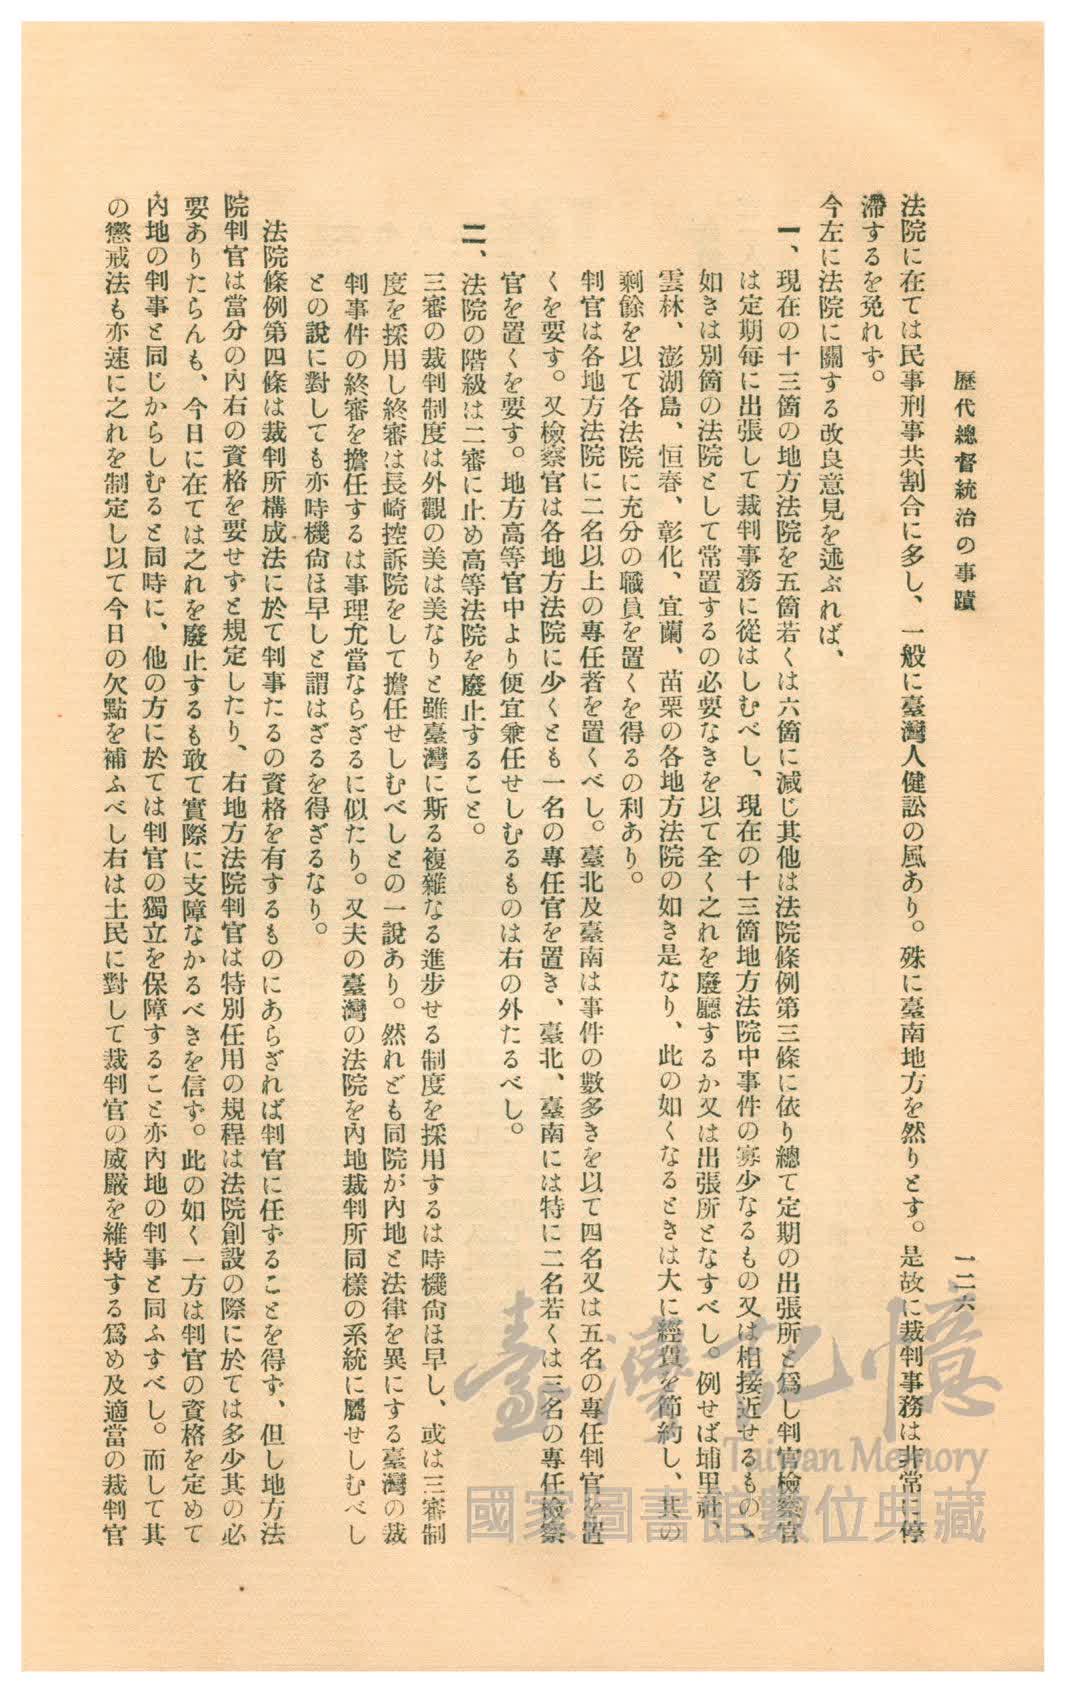 歷代總督統治の事蹟
一二六
法院に在ては民事刑事共割合に多し、一般に臺灣人健訟の風あり。殊に臺南地方を然りとす。是故に裁判事務は非常に停
滯するを免れず。
今左に法院に關する改良意見を述ぶれば、
一、現在の十三箇の地方法院を五箇若くは六箇に減じ其他は法院條例第三條に依り總て定期の出張所と爲し判官檢察官
は定期每に出張して裁判事務に從はしむべし、現在の十三箇地方法院中事件の寡少なるもの又は相接近せるものゝ
如きは別箇の法院として常置するの必要なきを以て全く之れを廢廳するか又は出張所となすべし。例せば埔里社、
雲林、澎湖島、恒春、彰化、宜蘭、苗栗の各地方法院の如き是なり、此の如くなるときは大に經費を節約し、其の
剩餘を以て各法院に充分の職員を置くを得るの利あり。
判官は各地方法院に二名以上の專任者を置くべし。臺北及臺南は事件の數多きを以て四名又は五名の專任判官を置
くを要す。又檢察官は各地方法院に少くとも一名の專任官を置き、臺北、臺南には特に二名若くは三名の專任檢察
官を置くを要す。地方高等官中より便宜兼任せしむるものは右の外たるべし。
二、法院の階級は二審に止め高等法院を廢止すること。
三審の裁判制度は外觀の美は美なりと雖臺灣に斯る複雜なる進步せる制度を採用するは時機尙ほ早し、或は三審制
度を採用し終審は長崎控訴院をして擔任せしむべしとの一說あり。然れども同院が內地と法律を異にする臺灣の裁
判事件の終審を擔任するは事理允當ならざるに似たり。又夫の臺灣の法院を內地裁判所同樣の系統に屬せしむべし
との說に對しても亦時機尙ほ早しと謂はざるを得ざるなり。
法院條例第四條は裁判所構成法に於て判事たるの資格を有するものにあらざれば判官に任ずることを得ず、但し地方法
院判官は當分の內右の資格を要せずと規定したり、右地方法院判官は特別任用の規程は法院創設の際に於ては多少其の必
要ありたらんも、今日に在ては之れを廢止するも敢て實際に支障なかるべきを信ず。此の如く一方は判官の資格を定めて
內地の判事と同じからしむると同時に、他の方に於ては判官の獨立を保障すること亦內地の判事と同ふすべし。而して其
の懲戒法も亦速に之れを制定し以て今日の欠點を補ふべし右は土民に對して裁判官の威嚴を維持する爲め及適當の裁判官
臺灣記憶
Taiwan Memory
國家圖書館數位典藏